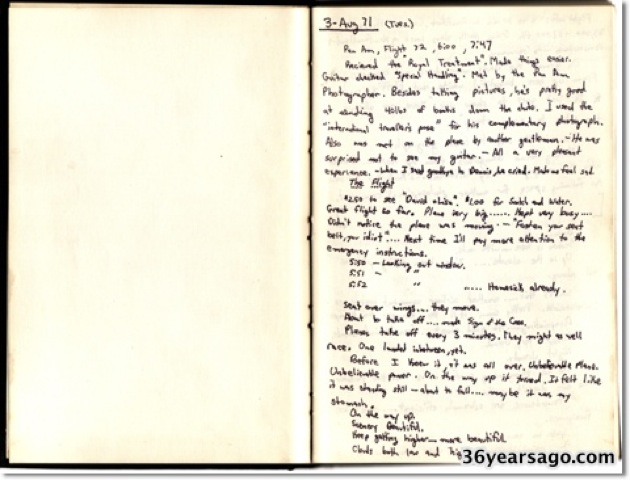 3-Aug 71 (Tues)
Pan Am, Flight 22, 6:00, 747
Recieved the "Royal Treatment". Made things easier.
Guitar checked "Special Handling". Met by the Pan Am
Photographer. Besides taking pictures, he's pretty good
at sending 40lbs of books down the chute. I used the
"international traveller's pose" for his complementary photograph.
Also was met on the plane by another gentleman. - He was
surprised not to see my guitar. - All a very pleasant
experience. - When I said goodbye to Dennis, he cried. Made me feel sad.
The Flight
$2.50 to see "David ". $1.00 for Scotch and Water.
Great flight so far. Plane very big...... Kept very busy....
Didn't notice the plane was moving - "Fasten your seat
belt, you idiot".... Next time I'll pay more attention to the
emergency instructions.
5:50 - Looking out window.
5:51 - "
5:52 " ..... Homesick already.
Seat over wings... they move.
About to take off.... made Sign of the Cross.
Planes take off every 3 minutes. They might as well
race. One landed inbetween, yet.
Before I knew it, it was all over. Unbelievable Plane.
Unbelievable power. On the way up it turned. It felt like
it was standing still - about to fall.... maybe it was my
stomach.
On the way up.
Scenery Beautiful.
Keep getting higher - more beautiful
Clouds both low and high
36yearsago.com